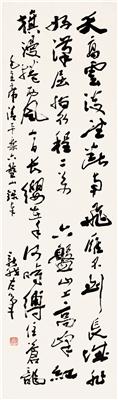 天高雲淡望斷南飛雁不到長城非
好漢屈指行程二萬六盤山上高峰紅
旗漫捲西風今日長纓在手何時縛住蒼龍
毛主席清平樂六盤山